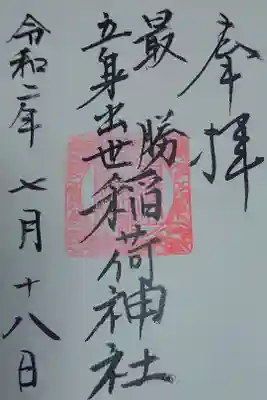 奉拝
最勝稲荷神社
五身出世
令和二年七月十八日